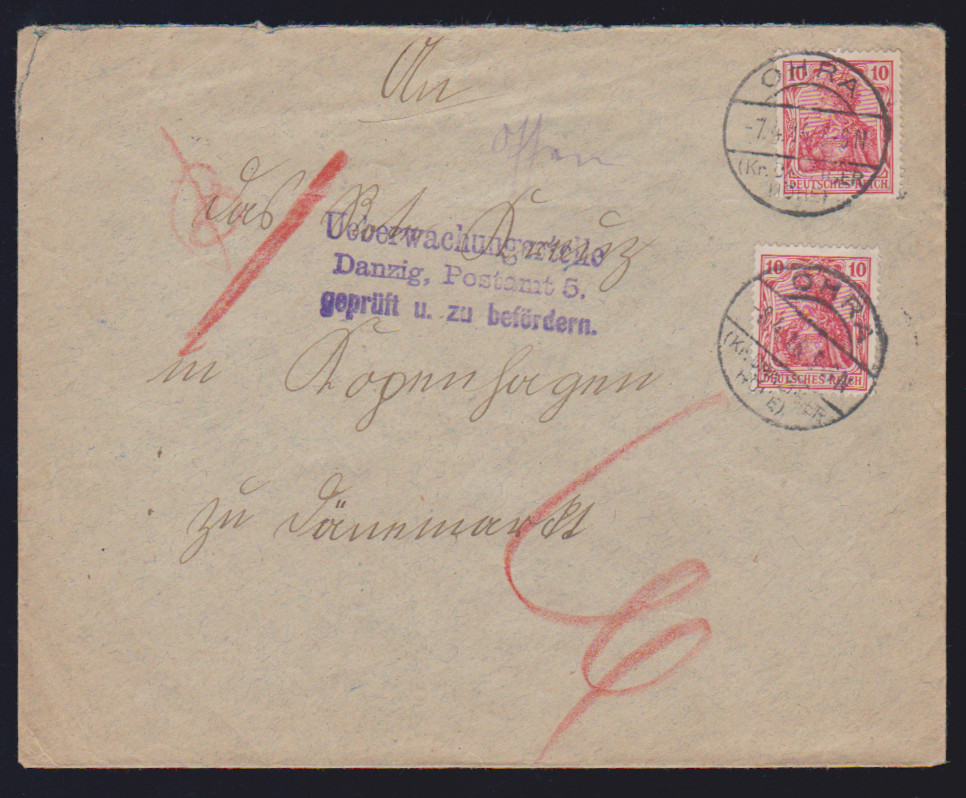 An
offen
das Rote Kreuz
in Kopenhagen
zu Dänemarkt
Ueberwachungsstelle
Danzig, Postamt 5.
geprüft u. zu befördern.
10 10
DEUTSCHES REICH
OHRA
-7.4.
N
(Kr.
HÖHE)
10 10
DEUTSCHES REICH
OHRA
(Kr.
HÖHE)